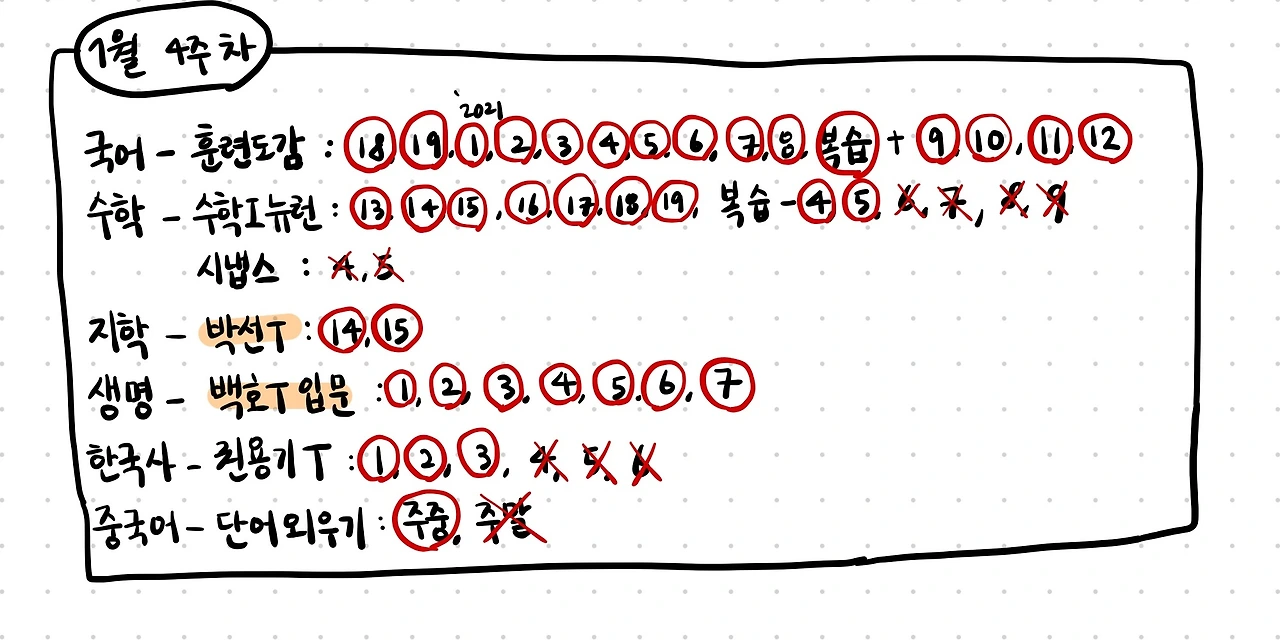 1월 4주차
'2021
국어 - 훈련도감 : 18 19, 1, 2, 3, 4, 5, 6, 7, 8, 복습 + 9, 10, 11, 12
수학 - 수학I뉴런 : 13, 14 15, 16, 17, 18, 19, 복습 - 4, 5, 6, 7, 8, 9
시냅스 : 4, 5
지학 - 박선T : 14, 15
생명 - 백호T 입문 : 1, 2, 3, 4, 5, 6, 7
한국사 - 권용기T : 1, 2, 3, 4, 5, 6
중국어 - 단어외우기 : 주중, 주말